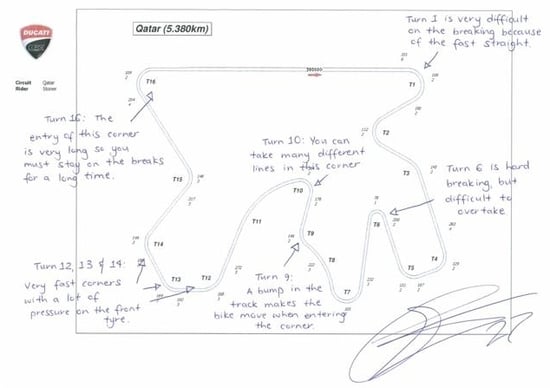 DUCATI
CORSE
Qatar (5.380km)
Circuit Qatar
Rider Stoner
Turn 1 is very difficult
on the breaking because
of the fast straight.
T16
T1
T2
T3
Turn 16: The
entry of this corner
is very long so you
must stay on the breaks
for a long time.
Turn 10: You can
take many different
lines in this corner
Turn 6 is hard
breaking, but
difficult to
overtake
T15
T10
T11
T9
T6
T14
T8
T4
T5
T13
T12
T7
Turn 12, 13 & 14:
Very fast corners
with a lot of
pressure on the front
tyre.
Turn 9:
A bump in the
track makes the
bike move when entering
the corner.